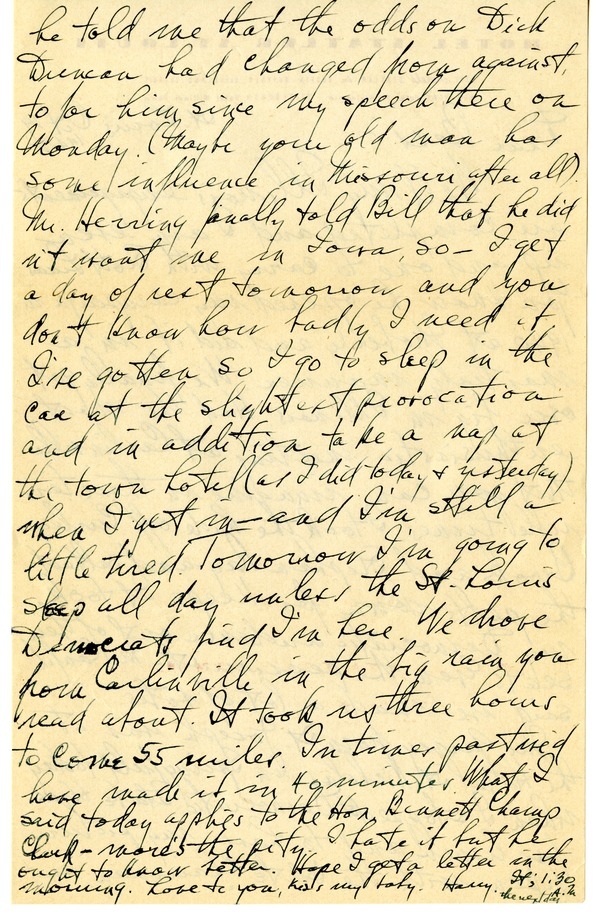 he told me that the odds on Dick
Duncan had changed from against,
to for him since my speech there on
Monday. (Maybe your old man has
some influence in Missouri after all)
Mr. Herring finally told Bill that he did
n't want me in Iowa, so— I get
a day of rest tomorrow and you
don't know how badly I need it.
I've gotten so I go to sleep in the
car at the slightest provocation
and in addition take a nap at
the town hotel (as I did today & yesterday)
when I get in—and I'm still a
little tired. Tomorrow I'm going to
sleep all day unless the St. Louis
Democrats find I'm here. We drove
from Carlinville in the big rain you
read about. It took us three hours
to come 55 miles. In times past we'd
have made it in 40 minutes. What I
said today applies to the Hon. Bennett Champ
Clark – more's the pity. I hate it but he
ought to know better. Hope I get a letter in the
morning. Love to you, kiss my baby. Harry.
It's 1:30
A.M.
the next day